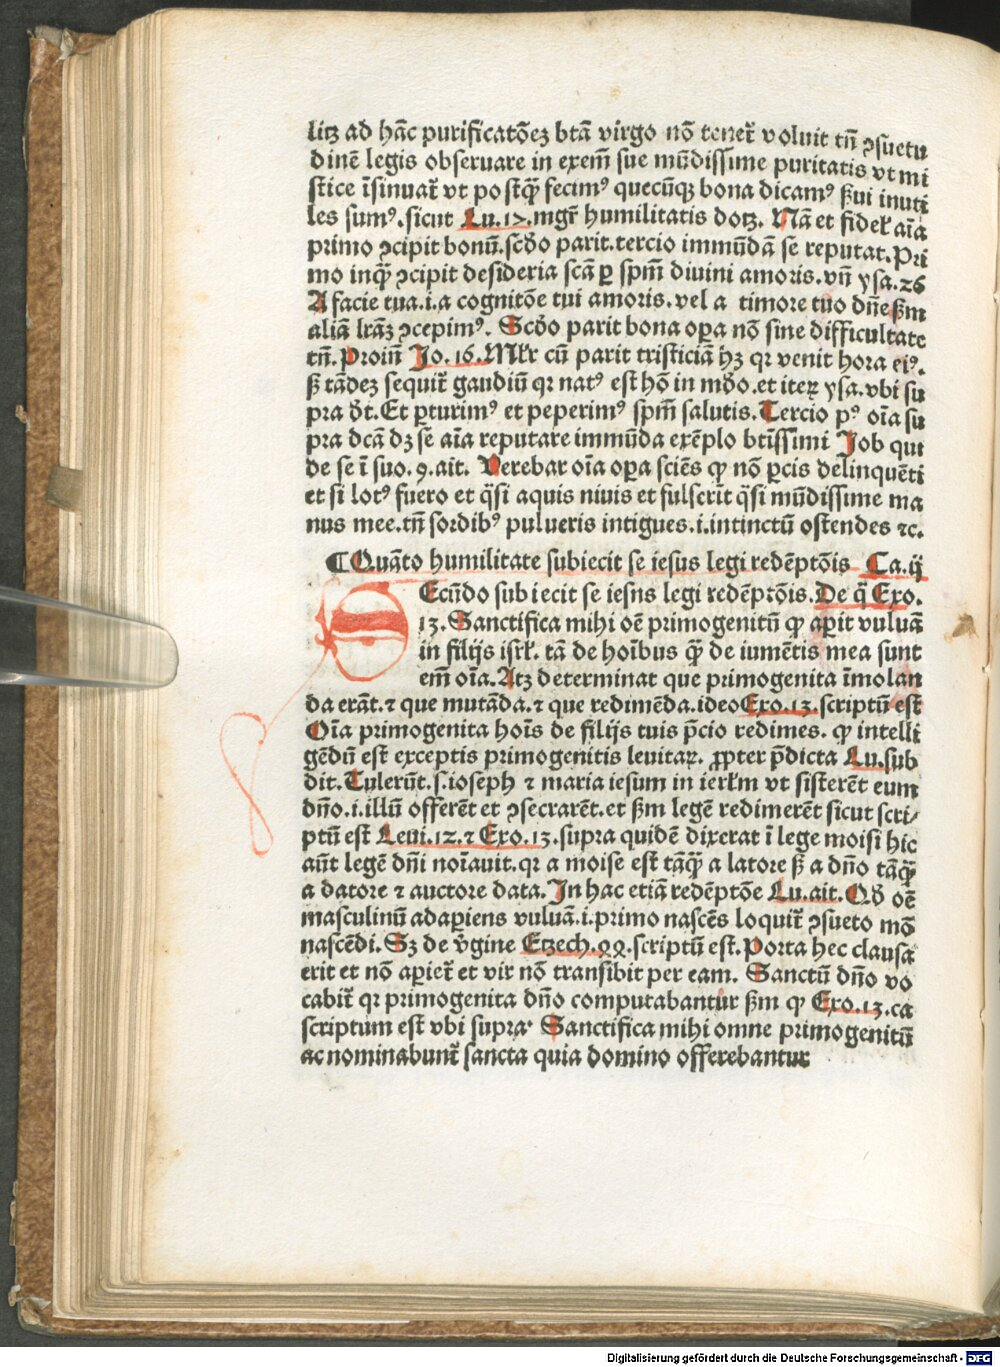 litꝫ ad hãc purificatõeꝫ btã virgo nõ tener̃ voluit tñ ꝯsuetu
dinẽ legis obseruare in exem̃ sue mũdissime puritatis vt mi
stice ĩsinuar̃ vt postq̃ȝ fecimꝰ quecũqꝫ bona dicamꝰ ẞui inuti
les sumꝰ.sicut Lu.17.mgr̃ humilitatis dotꝫ. Nã et fidel̃ aĩa
primo ꝯcipit bonũ.scðo parit.tercio immũdã se reputat.Pri
mo inq̃ȝ ꝯcipit desideria scã ꝑ spm̃ diuini amoris.vñ ysa.26
A facie tua.i.a cognitõe tui amoris.vel a timore tuo dñe ẞm
aliã lr̃aȝ ꝯcepimꝰ. Scðo parit bona oꝑa nõ sine difficultate
tñ. Proiñ Jo.16.Ml̃r cũ parit tristiciã hꝫ qr venit hora eiꝰ.
ẞ tãdeȝ sequit̃ gaudiũ qr natꝰ est hõ in mũðo.et iteꝝ ysa.vbi su
pra ðt.Et ꝑturimꝰ et peperimꝰ spm̃ salutis.Tercio pꝰ oĩa su
pra dcã dꝫ se aĩa reputare immũda exẽplo btĩssimi Job qui
de se ĩ suo.9.ait. Verebar oĩa oꝑa sciẽs ꝙ nõ ꝑcis delinquẽti
et si lotꝰ fuero et q̃si aquis niuis et fulserit q̃si mũdissime ma
nus mee.tñ sordibꝰ pulueris intigues.i.intinctũ ostendes ⁊c.
⁋Quãto humilitate subiecit se iesus legi redẽptõis Ca.ij
Ecũdo subiecit se iesus legi redẽptõis.De q̃ Exo.
13.Sanctifica mihi oẽ primogenitũ ꝙ aꝑit vuluã
in filijs isrl̃. tã de hoĩbus q̃ȝ de iumẽtis mea sunt
em̃ oĩa.Atꝫ determinat que primogenita ĩmolan
da erãt.⁊ que mutãda.⁊ que redimẽda.ideo Exo.13.scriptũ est
Oĩa primogenita hoĩs de filijs tuis p̃cio redimes. ꝙ intelli
gẽdũ est exceptis primogenitis leuitaꝝ. ꝓpter p̃dicta Lu.sub
dit.Tulerũt.s.ioseph ⁊ maria iesum in ierl̃m vt sisterẽt eum
dño.i.illũ offerẽt et ꝯsecrarẽt.et ẞm legẽ redimerẽt sicut scri⸗
ptũ est Leui.12.⁊ Exo.13.supra quidẽ dixerat ĩ lege moisi hic
aũt legẽ dñi noĩauit.qr a moise est tãq̃ȝ a latore ẞ a dño tãq̃ȝ
a datore ⁊ auctore data.In hac etiã redẽptõe Lu.ait.Qð oẽ
masculinũ adaꝑiens vuluã.i.primo nascẽs loquit̃ ꝯsueto mõ
nascẽdi.Sꝫ de v̾gine Etzech.44.scriptũ est.Porta hec clausa
erit et nõ aꝑiet̃ et vir nõ transibit per eam. Sanctũ dño vo
cabit̃ qr primogenita dño computabantur ẞm ꝙ Exo.13.ca
scriptum est vbi supra. Sanctifica mihi omne primogenitũ
ac nominabunt̃ sancta quia domino offerebantur
Digitalisierung gefördert durch die Deutsche Forschungsgemeinschaft - DFG